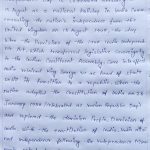 August as a national holiday in India comm
emorating the nation's independence from the
United Kingdom on 15 August 1947, the day
when the Provisions of the 1947 Indian independ
ence Act, which transferred legislative sovereignty
to the Indian Constituent Assembly, came into effect
India retained King George VI as head of state
until its transition to a republic, when the
nation adopted the Constitution of India on 26
January 1950 (celebrated as Indian Republic Day)
and replaced the dominion Prefix, Dominion of
India, with the enactment of
independence following the independence Movement